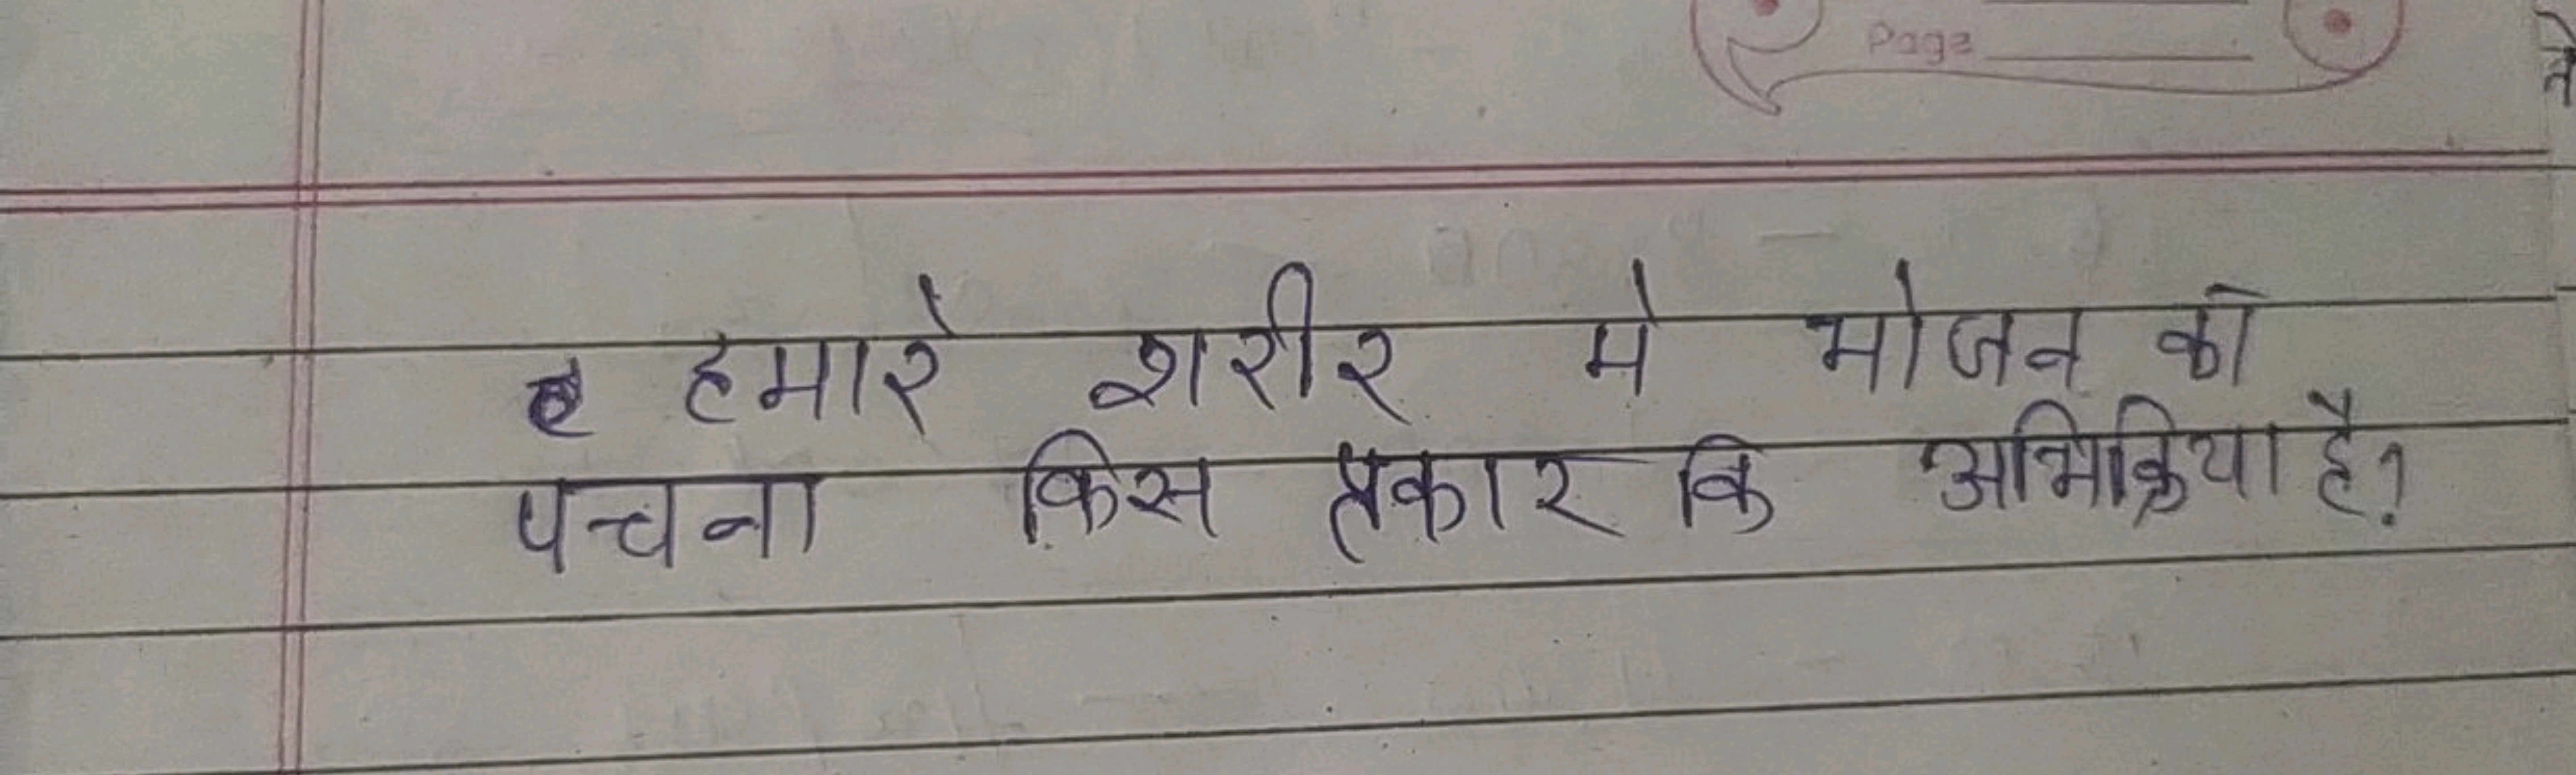 Page
हमारे शरीर मे भोजन को
पचना किस प्रकार कि अभिक्रिया है?